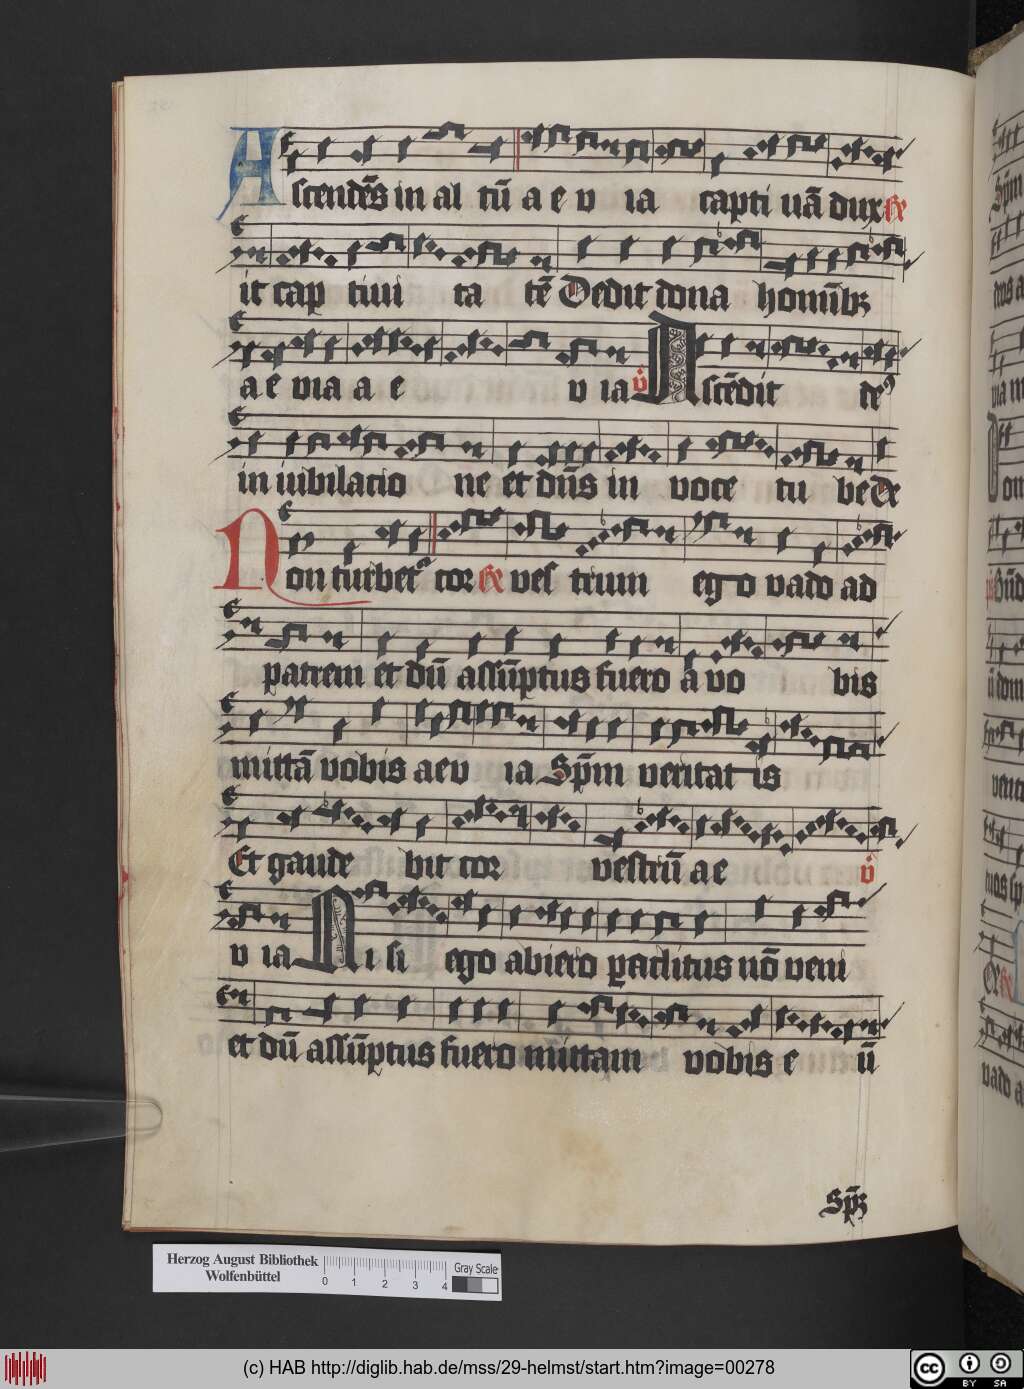 Ascendēs in al tū a e v ia capti uā dux ex
it cap tiui ta tē Dedit dona homīibꝫ
a e via a e v ia ꝟ Ascēdit deꝰ
in iubilacio ne et dn̄s in voce tu be De
Non turbet᷑ cor ex ves trum ego vado ad
patrem et dū assūptus fuero a vo bis
mittā vobis aev ia Spm̄ veritat is
Et gaude bit cor vestrū a e ꝟ
v ia Ni si ego abiero ꝑaclitus nō veni
et dū assūptus fuero mittam vobis e ū
Sp̄ꝫ
Herzog August Bibliothek
Wolfenbüttel
0 1 2 3 4
Gray Scale
(c) HAB http://diglib.hab.de/mss/29-helmst/start.htm?image=00278
cc BY SA